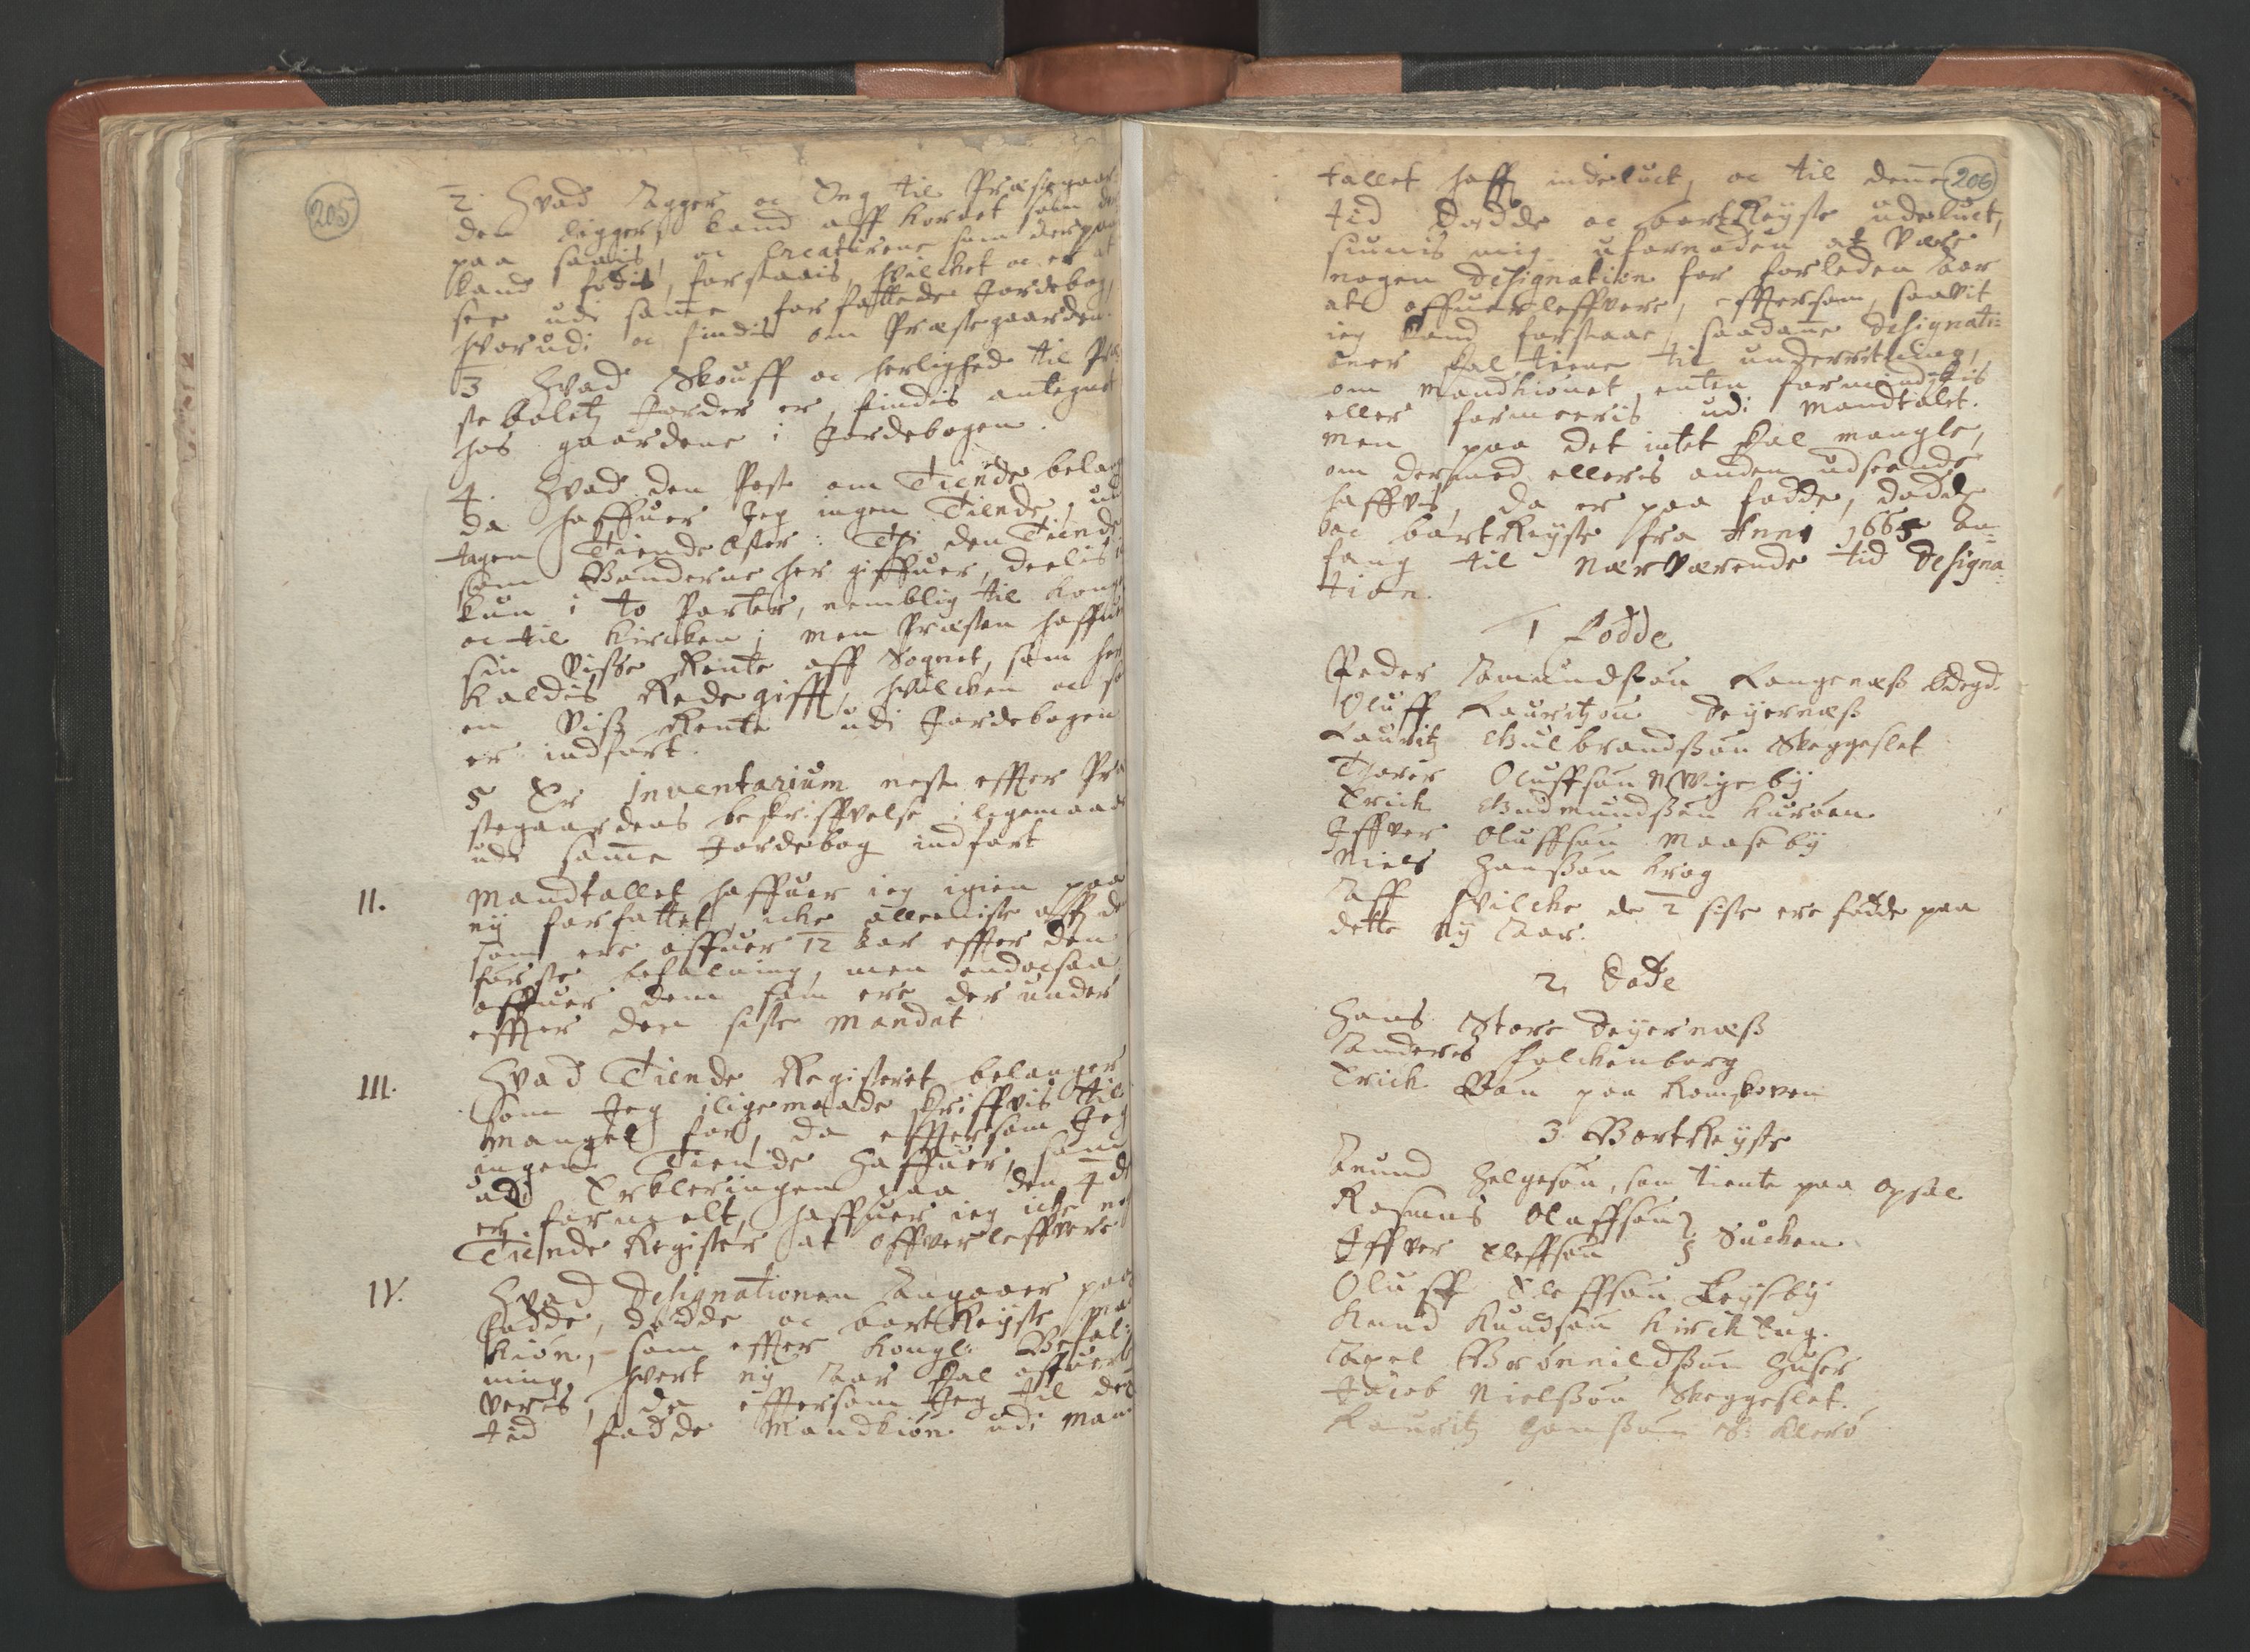 205
2. Hvad Agger oc Eng til Præstegaar
den ligger, kand aff Kornet som der
paa saais, oc Creaturene som derpaa
kand födis, forstaais, hvilchet oc er at
see udi samme forfattede Jordebog,
hvorudi oc findis om Præstegaarden.
3 Hvad Skouff oc herlighed til Præ
stebolitz Jorder er, findis antegnet
hos gaardene i Jordebogen.
4. Hvad den Post om Tiende belan
da haffuer Jeg ingen Tiende, ud
tagen Tiende Oster: Thi den Tiende
som Bønderne her giffuer, deelis i
kun i to Parter, nemblig til Kong
oc til Kircken; men Præsten haffuer
sin visse Rente aff Sognet, som her
kaldis Redegifft, hvilcken oc so
en viss Rente udi Jordebogen
er indført.
5 Er Inventarium nest effter Præ
stegaardens beskriffvelse iligemaade
udi samme Jordebog indført
II. Mandtallet haffuer ieg igien paa
ny forfattet, icke alleeniste aff de
som ere offuer 12 Aar effter den
første befalning, men endocsaa
offuer dem som ere derunder
effter den siste Mandat
III. Hvad Tiende Registeret belanger
som Jeg iligemaade skriffvis til
Mangel for, da effttersom Jeg
ingen Tiende haffuer, som
udi Erkleringen paa den 4 de
er formelt, haffuer ieg icke no
Tiende Register at offverleffvere
IV. Hvad Designationen Angaaer paa
födde, dödde oc bortReyste Ma
kiön, som effter Kongl: Befal:
ning hvert ny Aar skal offuerle
veris, da effttersom Jeg til den
tid födde Mandkiön udi Man
206
tallet haffr indsluct, oc til denne
tid Dödde oc bortReyste udeluct,
siunis mig ufornöden at være
nogen Designation for forleden Aar
at offuerleffvere, efftersom, saavit
ieg kand forstaae, saadanne Designati=
oner skal tiene til underretning,
om Mandkiönet enten formindskis
eller formeeris udi Mandtalet.
Men paa det intet skal mangle,
om dermed elleris anden udseende
haffvis, da er paa födde, dödde
oc bortReyste fra Anni 1665 An=
fang til Nærværende tid Designa=
tion.
1 Födde
Peder Amundssön Langenæss
Oluff Lauritzön Deyernæss
Lauritz Gulbrandssön Skeggeslet
Thorer Oluffsön Wigeby
Erich Gudmundssön Kuröen
Iffver Oluffsön Maaseby
Niels Hanssön Krog
Aff hvilcke de 2 siste ere födde paa
dette Ny Aar.
2, Döde
Hans Store Deyernæss
Anders Falckenborg
Erich Bön paa Komskoven
3 BortReyste
Amund Helgesön, som tiente paa Opsal
Rasmus Oluffsön
Iffver Eleffsön } Sucken
Oluff Eleffsön Leysby
Knud Knudsön KirckEng.
Axel Grönnildssön Huser
Jacob Nielssön Skeggeslet.
Lauritz Hanssön S: Klerö